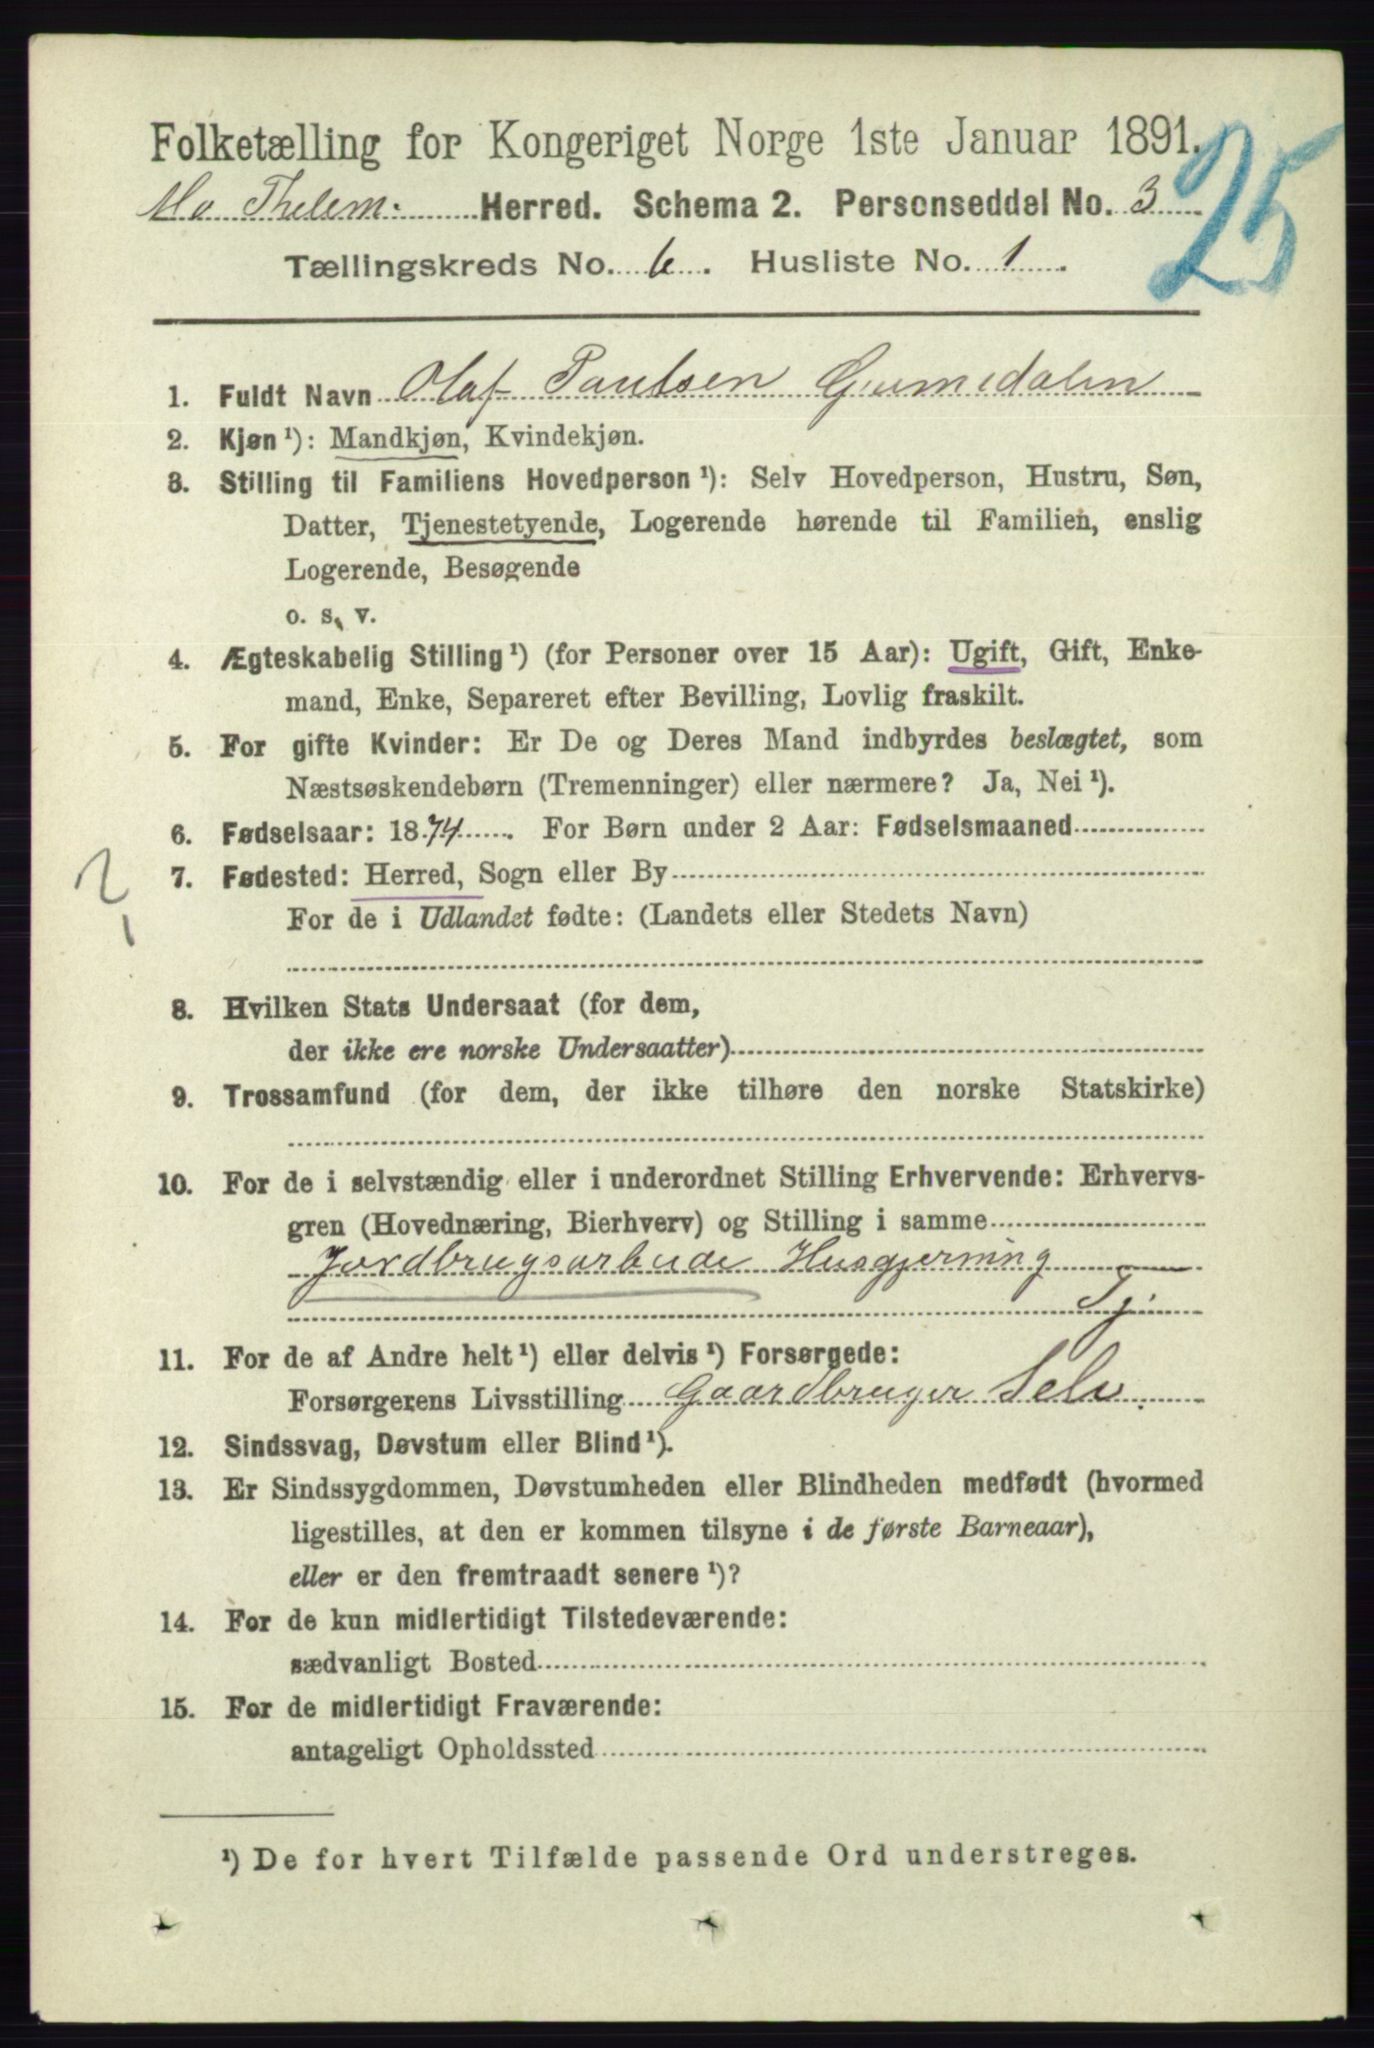 Folketælling for Kongeriget Norge 1ste Januar 1891.
25
Mo Thelem. Herred. Schema 2. Personseddel No. 3
Tællingskreds No. 6. Husliste No. 1.
1. Fuldt Navn Olaf Paulsen
2. Kjøn ¹): Mandkjøn, Kvindekjøn.
3. Stilling til Familiens Hovedperson ¹): Selv Hovedperson, Hustru, Søn,
Datter, Tjenestetyende, Logerende hørende til Familien, enslig
Logerende, Besøgende
o. s. v.
4. Ægteskabelig Stilling ¹) (for Personer over 15 Aar): Ugift, Gift, Enke-
mand, Enke, Separeret efter Bevilling, Lovlig fraskilt.
5. For gifte Kvinder: Er De og Deres Mand indbyrdes beslægtet, som
Næstsøskendebørn (Tremenninger) eller nærmere? Ja, Nei ¹).
6. Fødselsaar: 1874. For Børn under 2 Aar: Fødselsmaaned
?
7. Fødested: Herred, Sogn eller By
For de i Udlandet fødte: (Landets eller Stedets Navn)
8. Hvilken Stats Undersaat (for dem,
der ikke ere norske Undersaatter)
9. Trossamfund (for dem, der ikke tilhøre den norske Statskirke)
10. For de i selvstændig eller i underordnet Stilling Erhvervende: Erhvervs-
gren (Hovednæring, Bierhverv) og Stilling i samme
Jordbrugsarbeide Husgjerning
Tj.
11. For de af Andre helt ¹) eller delvis ¹) Forsørgede:
Forsørgerens Livsstilling Gaardbruger Selv.
12. Sindssvag, Døvstum eller Blind ¹).
13. Er Sindssygdommen, Døvstumheden eller Blindheden medfødt (hvormed
ligestilles, at den er kommen tilsyne i de første Barneaar),
eller er den fremtraadt senere ¹)?
14. For de kun midlertidigt Tilstedeværende:
sædvanligt Bosted
15. For de midlertidigt Fraværende:
antageligt Opholdssted
¹) De for hvert Tilfælde passende Ord understreges.